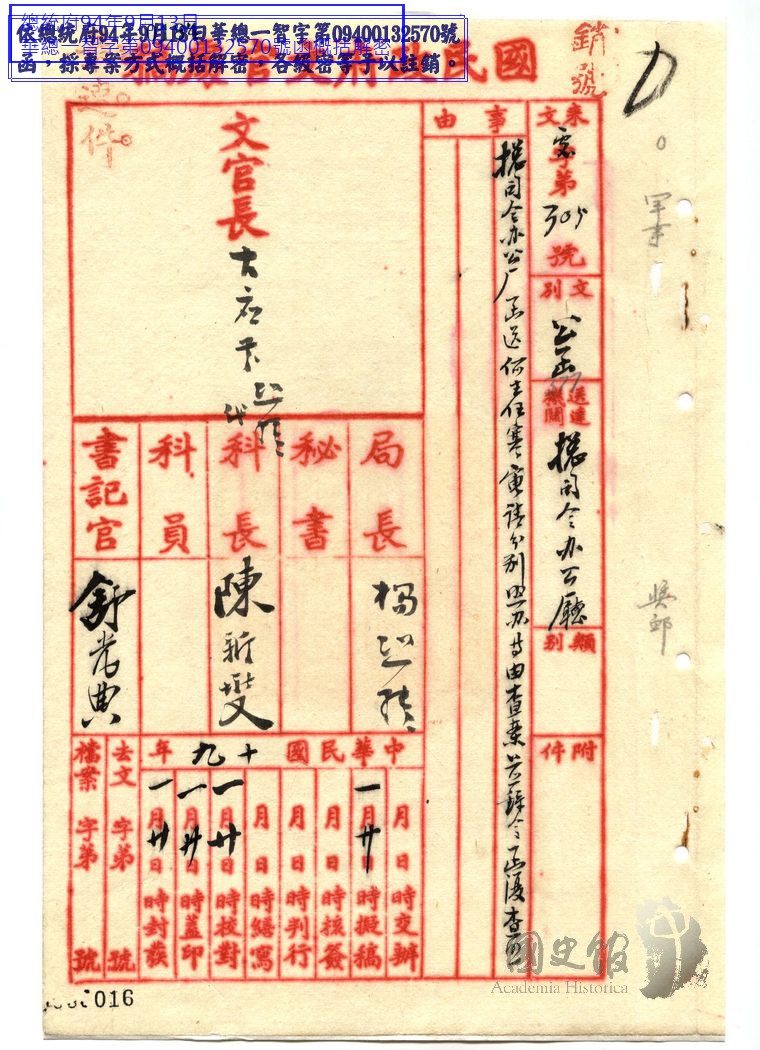 總統府94年9月13日
華總一智字第09400132570號函概括解密
依總統府94年9月13日華總一智字第09400132570號
函，採專案方式概括解密，各級密等予以註銷。
國民政府文官處稿
銷號
速件
來文 字第 305 號
文別 公函
送達機關 總司令办公廳
類別
附件
事由
總司令办公厅函送何主任
電請分別
由查案
令函復查照
文官長 古應芬
代
局長 楊熙績
秘書
科長 陳新燮
科員
書記官 舒光典
中華民國十九年
月 日 時交辦
一月廿日 時擬稿
月 日 時核簽
月 日 時判行
月 日 時繕寫
一月廿日 時校對
一月廿日 時蓋印
一月廿日 時封發
去文 字第 號
檔案 字第 號
軍事
016
國史館
Academia Historica